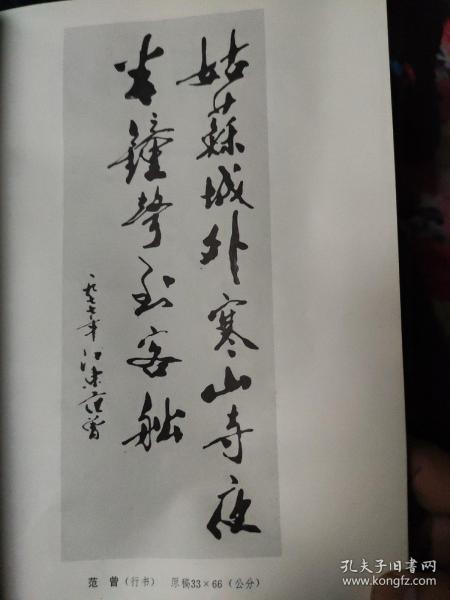 姑蘇城外寒山寺夜
半鐘聲到客船
一九七七年江東范曾
范 曾(行书) 原稿33×66(公分)
孔夫子旧书网
www.kongfz.com